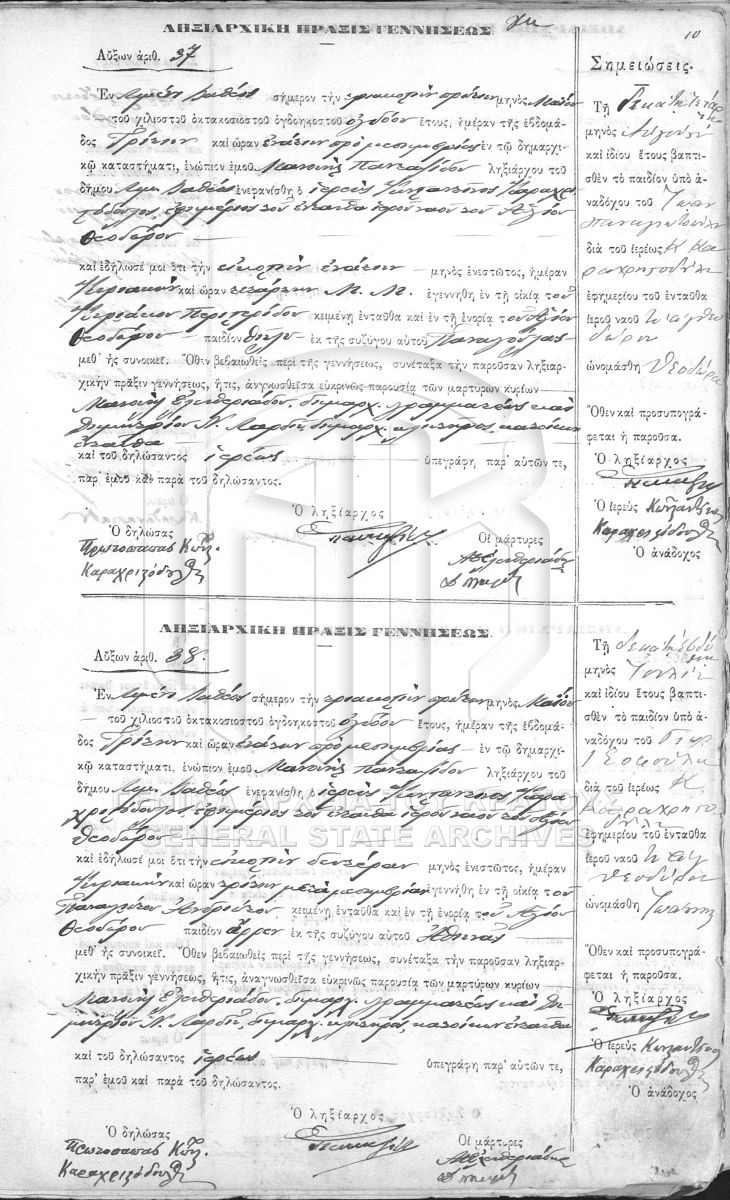 10
ΛΗΞΙΑΡΧΙΚΗ ΠΡΑΞΙΣ ΓΕΝΝΗΣΕΩΣ
Αὔξων ἀριθ. 37
Ἐν Λιμένι Βαθέος σήμερον τὴν τριακοστὴν πρώτην μηνὸς Μαΐου
τοῦ χιλιοστοῦ ὀκτακοσιοστοῦ ὀγδοηκοστοῦ ὀγδόου ἔτους, ἡμέραν τῆς ἑβδομά-
δος Τρίτην καὶ ὥραν ἐνάτην πρὸ μεσημβρίας ἐν τῷ δημαρχι-
κῷ καταστήματι, ἐνώπιον ἐμοῦ Μανουὴλ ληξιάρχου τοῦ
δήμου Λιμ. Βαθέος ἐνεφανίσθη ὁ ἱερεὺς Κωνσταντῖνος Καραχρι-
στόδουλος, ἐφημέριος τοῦ ἐνταῦθα ἱεροῦ ναοῦ τοῦ Ἁγίου
Θεοδώρου
καὶ ἐδήλωσέ μοι ὅτι τὴν εἰκοστὴν ἐνάτην μηνὸς ἐνεστῶτος, ἡμέραν
Κυριακὴν καὶ ὥραν τετάρτην Μ. Μ. ἐγεννήθη ἐν τῇ οἰκίᾳ τοῦ
Κυριάκου κειμένῃ ἐνταῦθα καὶ ἐν τῇ ἐνορίᾳ τοῦ Ἁγίου
Θεοδώρου παιδίον θῆλυ ἐκ τῆς συζύγου αὐτοῦ Παναγούλας
μεθ᾽ ἧς συνοικεῖ. Ὅθεν βεβαιωθεὶς περὶ τῆς γεννήσεως, συνέταξα τὴν παροῦσαν ληξιαρ-
χικὴν πρᾶξιν γεννήσεως, ἥτις, ἀναγνωσθεῖσα εὐκρινῶς παρουσίᾳ τῶν μαρτύρων κυρίων
Μανουὴλ Ἐλευθεριάδου, δημαρχ. γραμματέως καὶ
Δημητρίου Ν. δημαρχ. κλητῆρος, κατοίκων
ἐνταῦθα
καὶ τοῦ δηλώσαντος ἱερέως ὑπεγράφη παρ᾽ αὐτῶν τε,
παρ᾽ ἐμοῦ καὶ παρὰ τοῦ δηλώσαντος.
Ὁ ληξίαρχος
Ὁ δηλώσας
Οἱ μάρτυρες
Πρωτοπαπᾶς Κωνστ.
Καραχριστόδουλος
Μ Ἐλευθεριάδης
Σημειώσεις.
Τῇ δεκάτῃ τετάρτῃ
μηνὸς
καὶ ἰδίου ἔτους βαπτι-
σθὲν τὸ παιδίον ὑπὸ ἀ-
ναδόχου τοῦ
διὰ τοῦ ἱερέως Κ Κα
ραχρηστοδούλου
ἐφημερίου τοῦ ἐνταῦθα
ἱεροῦ ναοῦ τ. ἁγ. Θεο
δώρου
ὠνομάσθη Θεοδώρα
Ὅθεν καὶ προσυπογρά-
φεται ἡ παροῦσα.
Ὁ ληξίαρχος
Ὁ ἱερεὺς Κωνσταντῖνος
Καραχριστόδουλος
Ὁ ἀνάδοχος
ΛΗΞΙΑΡΧΙΚΗ ΠΡΑΞΙΣ ΓΕΝΝΗΣΕΩΣ.
Αὔξων ἀριθ. 38.
Ἐν Λιμένι Βαθέος σήμερον τὴν τριακοστὴν πρώτην μηνὸς Μαΐου
τοῦ χιλιοστοῦ ὀκτακοσιοστοῦ ὀγδοηκοστοῦ ὀγδόου ἔτους, ἡμέραν τῆς ἑβδομά-
δος Τρίτην καὶ ὥραν ἐνάτην πρὸ μεσημβρίας ἐν τῷ δημαρχι-
κῷ καταστήματι, ἐνώπιον ἐμοῦ Μανουὴλ ληξιάρχου τοῦ
δήμου Λιμ. Βαθέος ἐνεφανίσθη ὁ ἱερεὺς Κωνσταντῖνος Καρα
χριστόδουλος ἐφημέριος τοῦ ἐνταῦθα ἱεροῦ ναοῦ τοῦ Ἁγίου
Θεοδώρου
καὶ ἐδήλωσέ μοι ὅτι τὴν εἰκοστὴν δευτέραν μηνὸς ἐνεστῶτος, ἡμέραν
Κυριακὴν καὶ ὥραν τρίτην μετὰ μεσημβρίαν ἐγεννήθη ἐν τῇ οἰκίᾳ τοῦ
κειμένῃ ἐνταῦθα καὶ ἐν τῇ ἐνορίᾳ τοῦ Ἁγίου
Θεοδώρου παιδίον ἄρρεν ἐκ τῆς συζύγου αὐτοῦ Ἀθηνᾶς
μεθ᾽ ἧς συνοικεῖ. Ὅθεν βεβαιωθεὶς περὶ τῆς γεννήσεως, συνέταξα τὴν παροῦσαν ληξιαρ-
χικὴν πρᾶξιν γεννήσεως, ἥτις, ἀναγνωσθεῖσα εὐκρινῶς παρουσίᾳ τῶν μαρτύρων κυρίων
Μανουὴλ Ἐλευθεριάδου, δημαρχ. γραμματέως καὶ Δη
μητρίου Ν. δημαρχ. κλητῆρος, κατοίκων ἐνταῦθα
καὶ τοῦ δηλώσαντος ἱερέως ὑπεγράφη παρ᾽ αὐτῶν τε,
παρ᾽ ἐμοῦ καὶ παρὰ τοῦ δηλώσαντος.
Ὁ ληξίαρχος
Ὁ δηλώσας
Οἱ μάρτυρες
Πρωτοπαπᾶς Κωνστ.
Καραχριστόδουλος
Μ Ἐλευθεριάδης
Τῇ δεκάτῃ ἑβδό
μῃ
μηνὸς Ἰουλίου
καὶ ἰδίου ἔτους βαπτι-
σθὲν τὸ παιδίον ὑπὸ ἀ-
ναδόχου τοῦ
διὰ τοῦ ἱερέως Κ.
Καραχρηστο
δούλου
ἐφημερίου τοῦ ἐνταῦθα
ἱεροῦ ναοῦ τ. ἁγ
Θεοδώρου
ὠνομάσθη Ἰωάννης
Ὅθεν καὶ προσυπογρά-
φεται ἡ παροῦσα.
Ὁ ληξίαρχος
Ὁ ἱερεὺς Κωνσταντῖνος
Καραχριστόδουλος
Ὁ ἀνάδοχος
ΓΕΝΙΚΑ ΑΡΧΕΙΑ ΤΟΥ ΚΡΑΤΟΥΣ
GENERAL STATE ARCHIVES